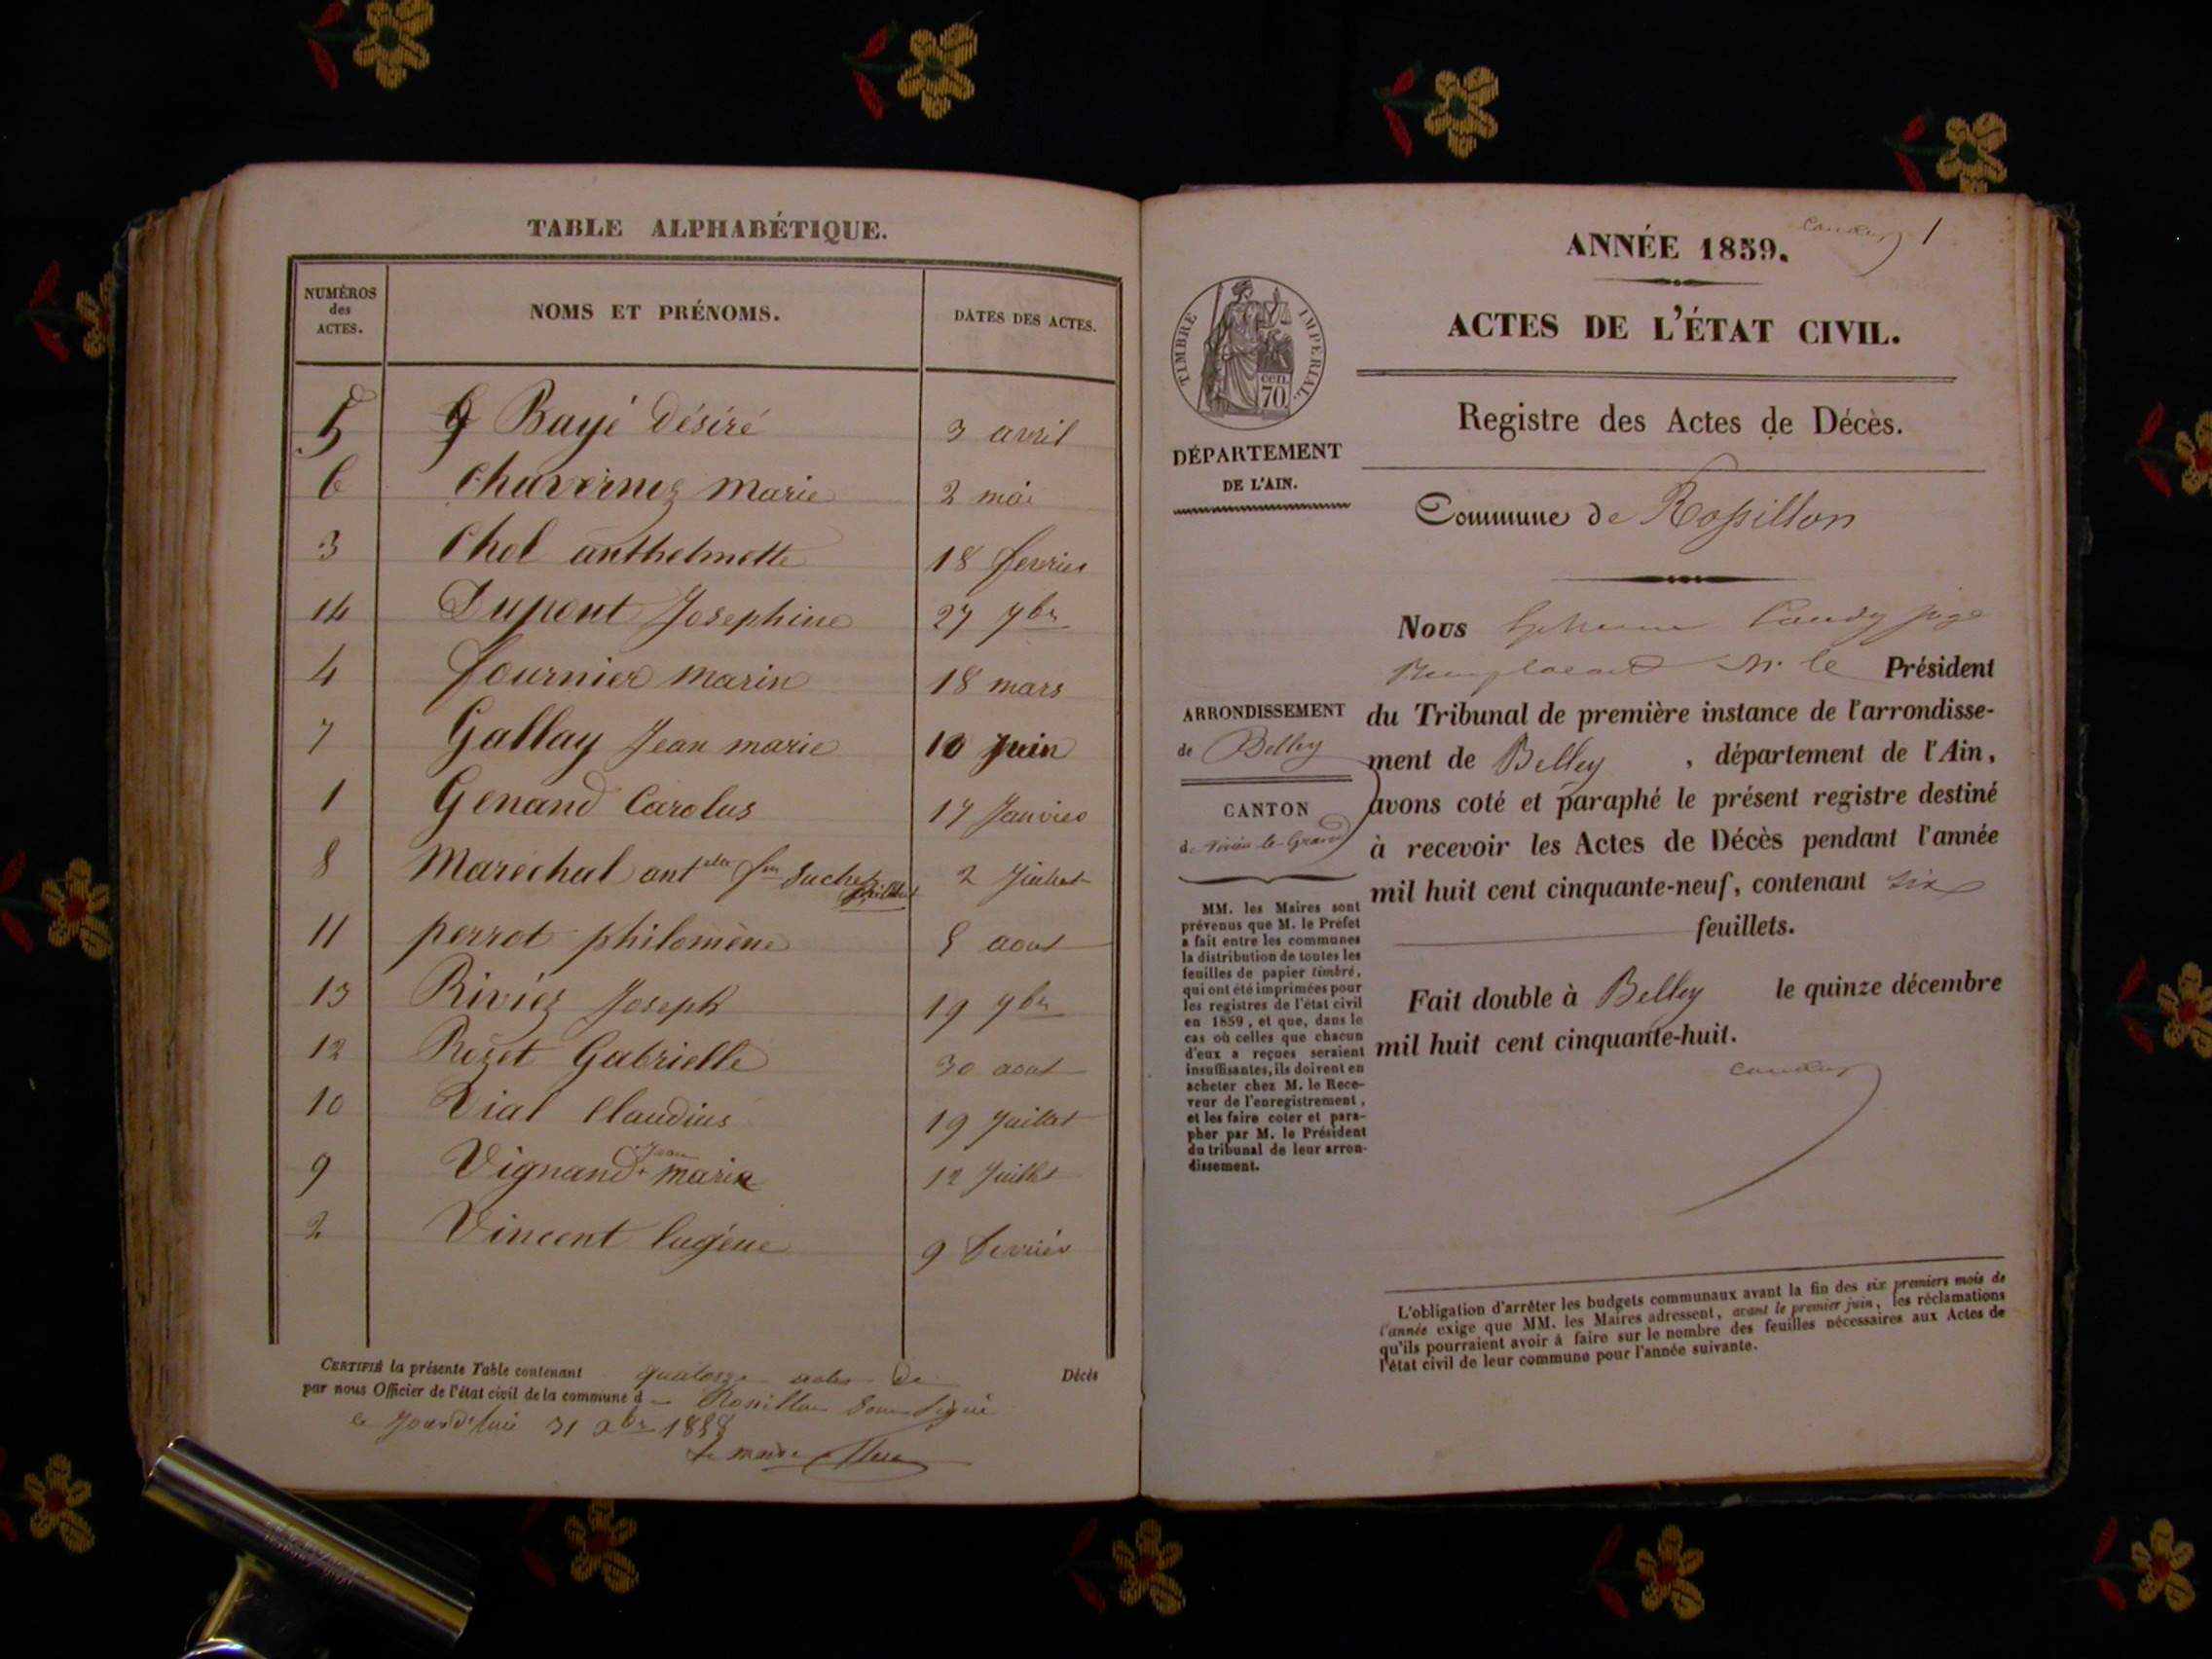 TABLE ALPHABÉTIQUE.
NUMÉROS
des
ACTES.
NOMS ET PRÉNOMS.
DATES DES ACTES.
5 Bayé Désiré 3 avril
6 Chavernoz marie 2 mai
3 Chol anthelmette 18 fevrier
14 Dupont Josephine 27 7bre
4 fournier marin 18 mars
7 Gallay Jean marie 10 juin
1 Genand Carolus 17 Janvier
8 Maréchal fm Suchet 2 Juillet
11 perrot philomène 5 aout
13 Riviez Joseph 19 7bre
12 Rozet Gabrielle 30 aout
10 Vial Claudius 19 Juillet
Jean
9 Vignand marie 12 Juillet
2 Vincent Eugène 9 fevrier
CERTIFIÉ la présente Table contenant quatorze actes de Décès
par nous Officier de l'état civil de la commune d Rossillon
le Jourd'hui 31 Xbre 1858
Le maire
1
ANNÉE 1859.
ACTES DE L'ÉTAT CIVIL.
Registre des Actes de Décès.
Commune de Rossillon
TIMBRE IMPERIAL.
cen.
70.
DÉPARTEMENT
DE L'AIN.
ARRONDISSEMENT
de Belley
CANTON
de Virieu le Grand
MM. les Maires sont
prévenus que M. le Préfet
a fait entre les communes
la distribution de toutes les
feuilles de papier timbré,
qui ont été imprimées pour
les registres de l'état civil
en 1859, et que, dans le
cas où celles que chacun
d'eux a reçues seraient
insuffisantes, ils doivent en
acheter chez M. le Rece-
veur de l'enregistrement,
et les faire coter et para-
pher par M. le Président
du tribunal de leur arron-
dissement.
Nous juge
Remplacant Mr le Président
du Tribunal de première instance de l'arrondisse-
ment de Belley , département de l'Ain,
avons coté et paraphé le présent registre destiné
à recevoir les Actes de Décès pendant l'année
mil huit cent cinquante-neuf, contenant six
feuillets.
Fait double à Belley le quinze décembre
mil huit cent cinquante-huit.
L'obligation d'arrêter les budgets communaux avant la fin des six premiers mois de
l'année exige que MM. les Maires adressent, avant le premier juin, les réclamations
qu'ils pourraient avoir à faire sur le nombre des feuilles nécessaires aux Actes de
l'état civil de leur commune pour l'année suivante.